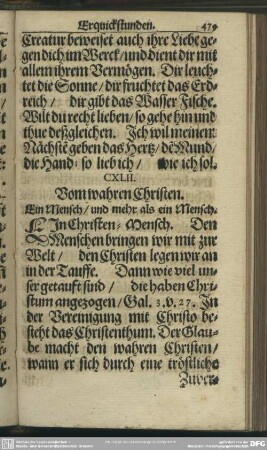 Erquickstunden. 479
Creatur beweiset auch ihre Liebe ge-
gen dich im Werck/ und dient dir mit
allem ihrem Vermögen. Dir leuch-
tet die Sonne/ dir fruchtet das Erd-
reich/ dir gibt das Wasser Fische.
Wilt du recht lieben/ so gehe hin und
thue deßgleichen. Ich wil meinem
Nächstē geben das Hertz/ dē Mund/
die Hand: so lieb ich/ wie ich sol.
CXLII.
Vom wahren Christen.
Ein Mensch/ und mehr als ein Mensch.
EIn Christen-Mensch. Den
Menschen bringen wir mit zur
Welt/ den Christen legen wir an
in der Tauffe. Dann wie viel un-
ser getauft sind/ die haben Chri-
stum angezogen/ Gal. 3. v. 27. In
der Vereinigung mit Christo be-
steht das Christenthum. Der Glau-
be macht den wahren Christen/
wann er sich durch eine tröstliche
Zuver-